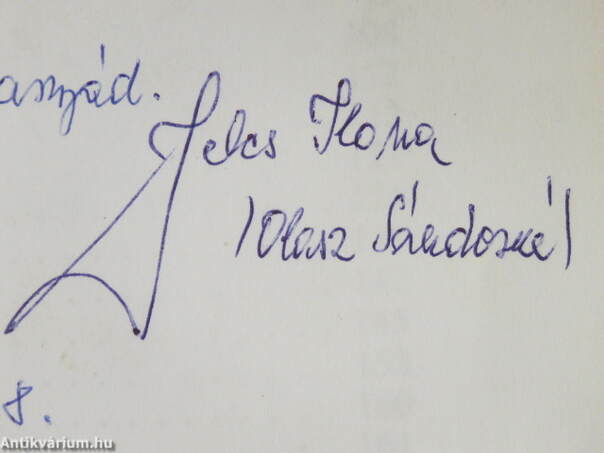 asszád.
Jelcs Ilona
/Olasz Sándorné/
8.
Antikvárium.hu